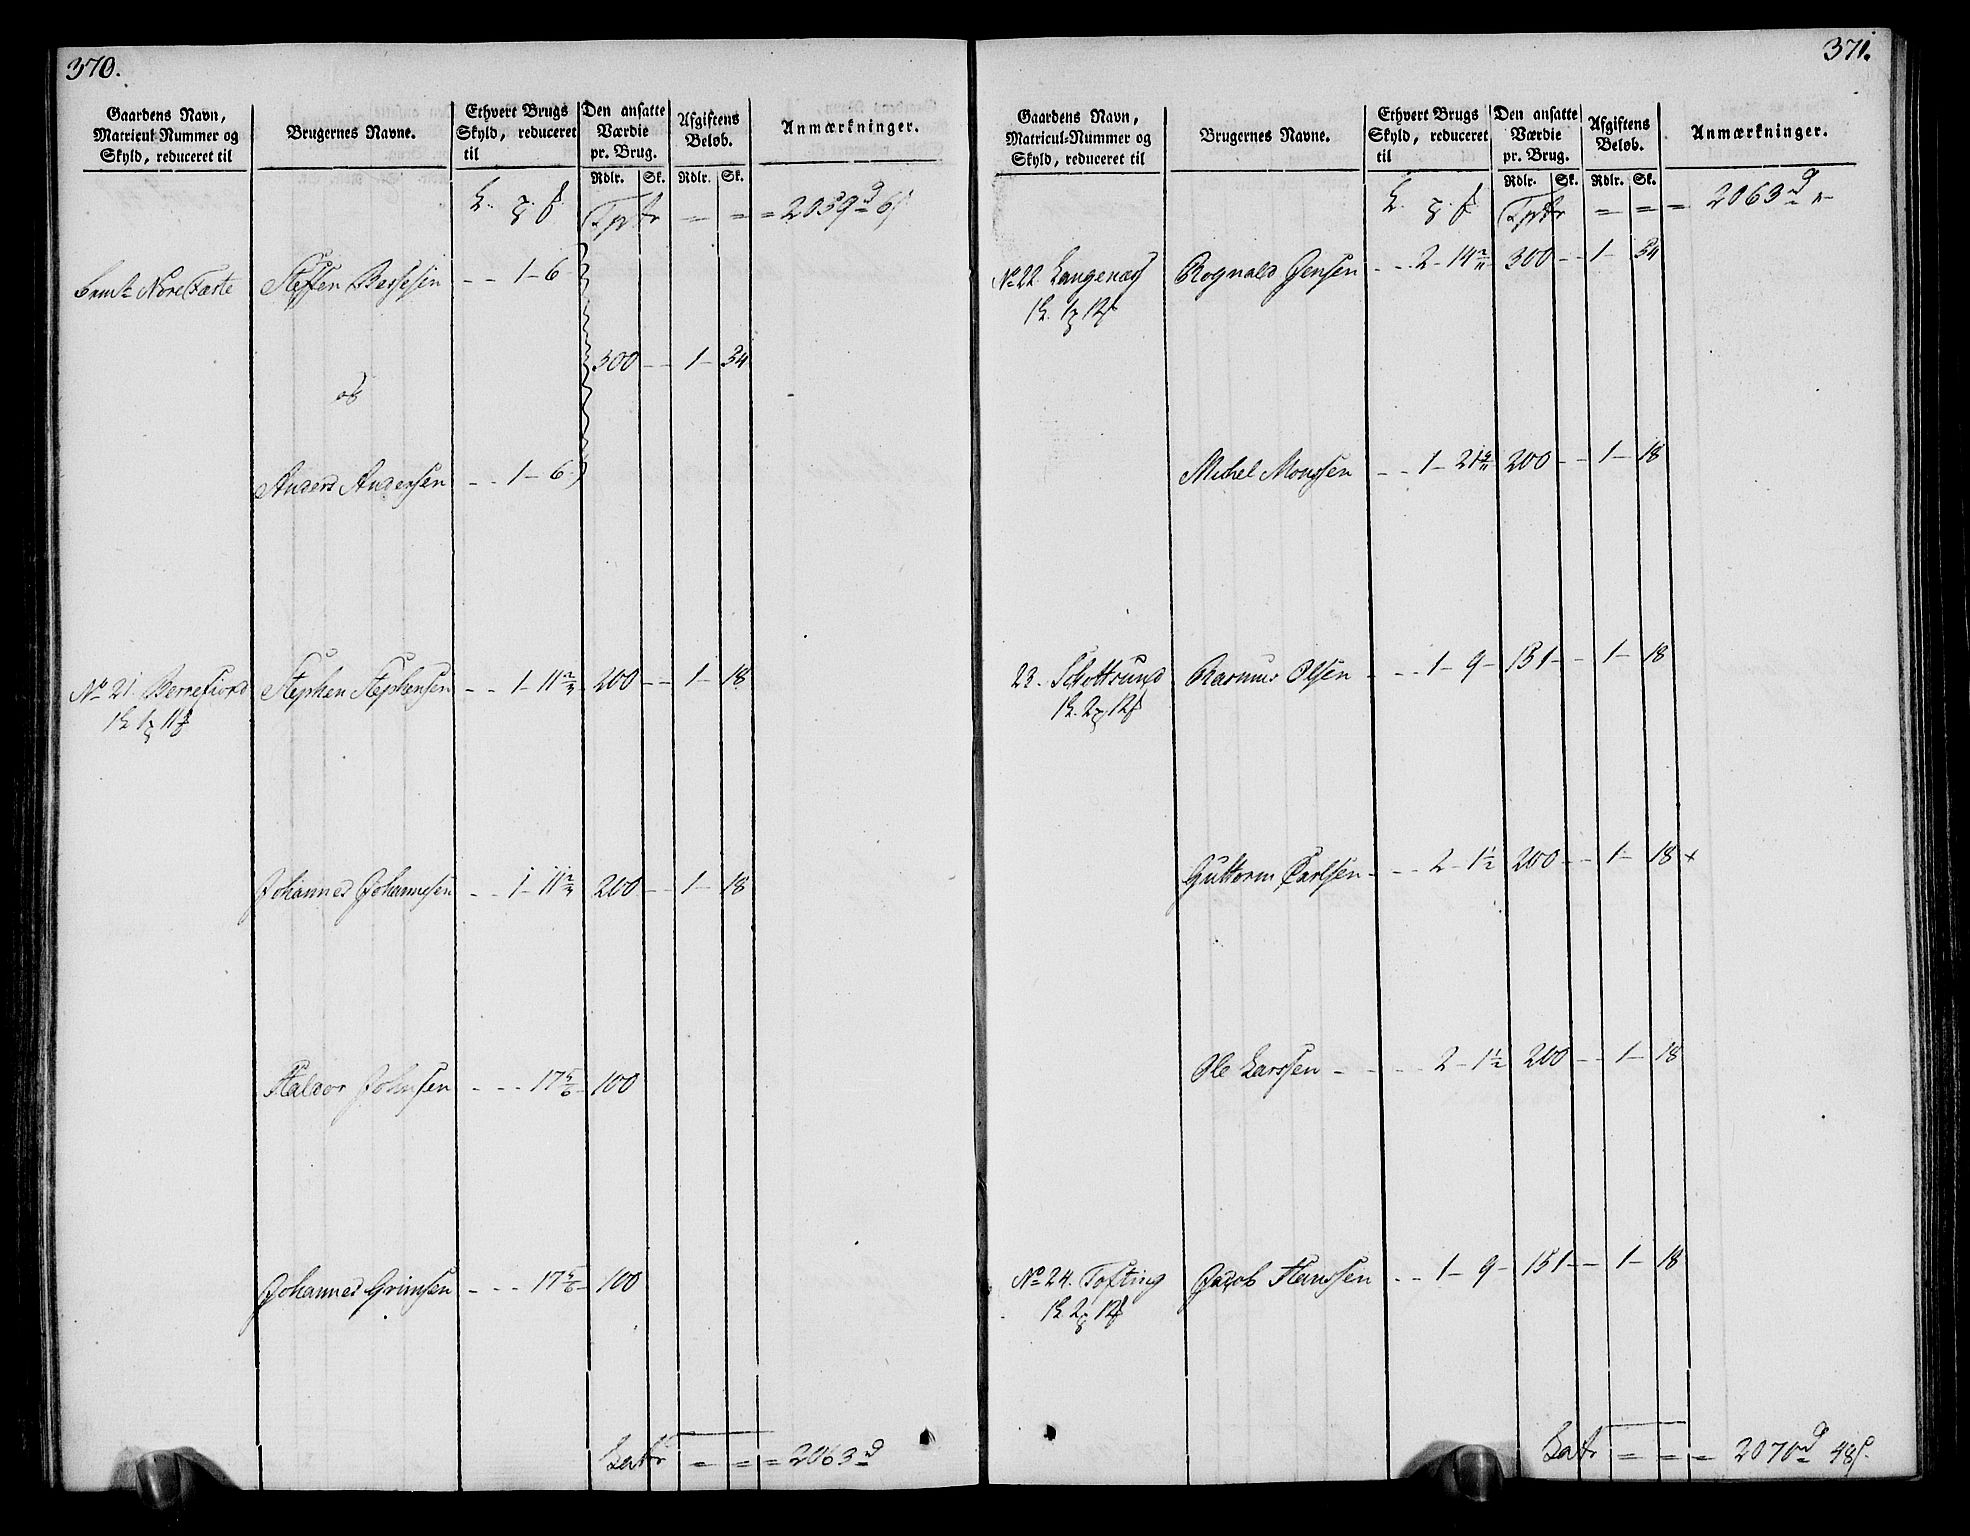 370.
Gaardens Navn, Matricul-Nummer og Skyld, reduceret til
Brugernes Navne.
Ethvert Brugs Skyld, reduceret til
Den ansatte Værdie pr. Brug.
Afgiftens Beløb.
Anmærkninger.
Rdlr. Sk. Rdlr. Sk.
Tpt = = = 2059
Nore Farte Steffen - - 1 - 6
300 - - 1 - 34
og
Anders Andersen - - 1 - 6
No 21. Berrefiord Stephen Stephensen - - 1 - 11 200 - - 1 - 18
Johannes Johannesen - - 1 - 11 200 - - 1 - 18
Haldor Johnsen - - - 17 5/6 100
Johannes Grimsen - - - 17 5/6 100
Latr = = = 2063
371.
Gaardens Navn, Matricul-Nummer og Skyld, reduceret til
Brugernes Navne.
Ethvert Brugs Skyld, reduceret til
Den ansatte Værdie pr. Brug.
Afgiftens Beløb.
Anmærkninger.
Rdlr. Sk. Rdlr. Sk.
Tpt = = = 2063
No 22. Langenæs Rognald Jensen - - 2 - 14 300 - - 1 - 34
Michel Monssen - - 1 - 21 200 - - 1 - 18
23. Schottsund Rasmus Olsen - - 1 - 9 - 151 - - 1 - 18
Guttorm Carlsen - - - 2 - 1 1/2 200 - - 1 - 18 +
Ole Larssen - - - 2 - 1 1/2 200 - - 1 - 18
No 24. Tofting Jacob Hanssen - - 1 - 9 - 151 - - 1 - 18
Latr = = = 2070 48